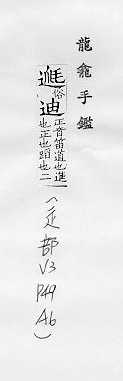 龍龕手鑑
俗迪正音笛道也進
也正也蹈也二
(辵部
V3
P49
A6)